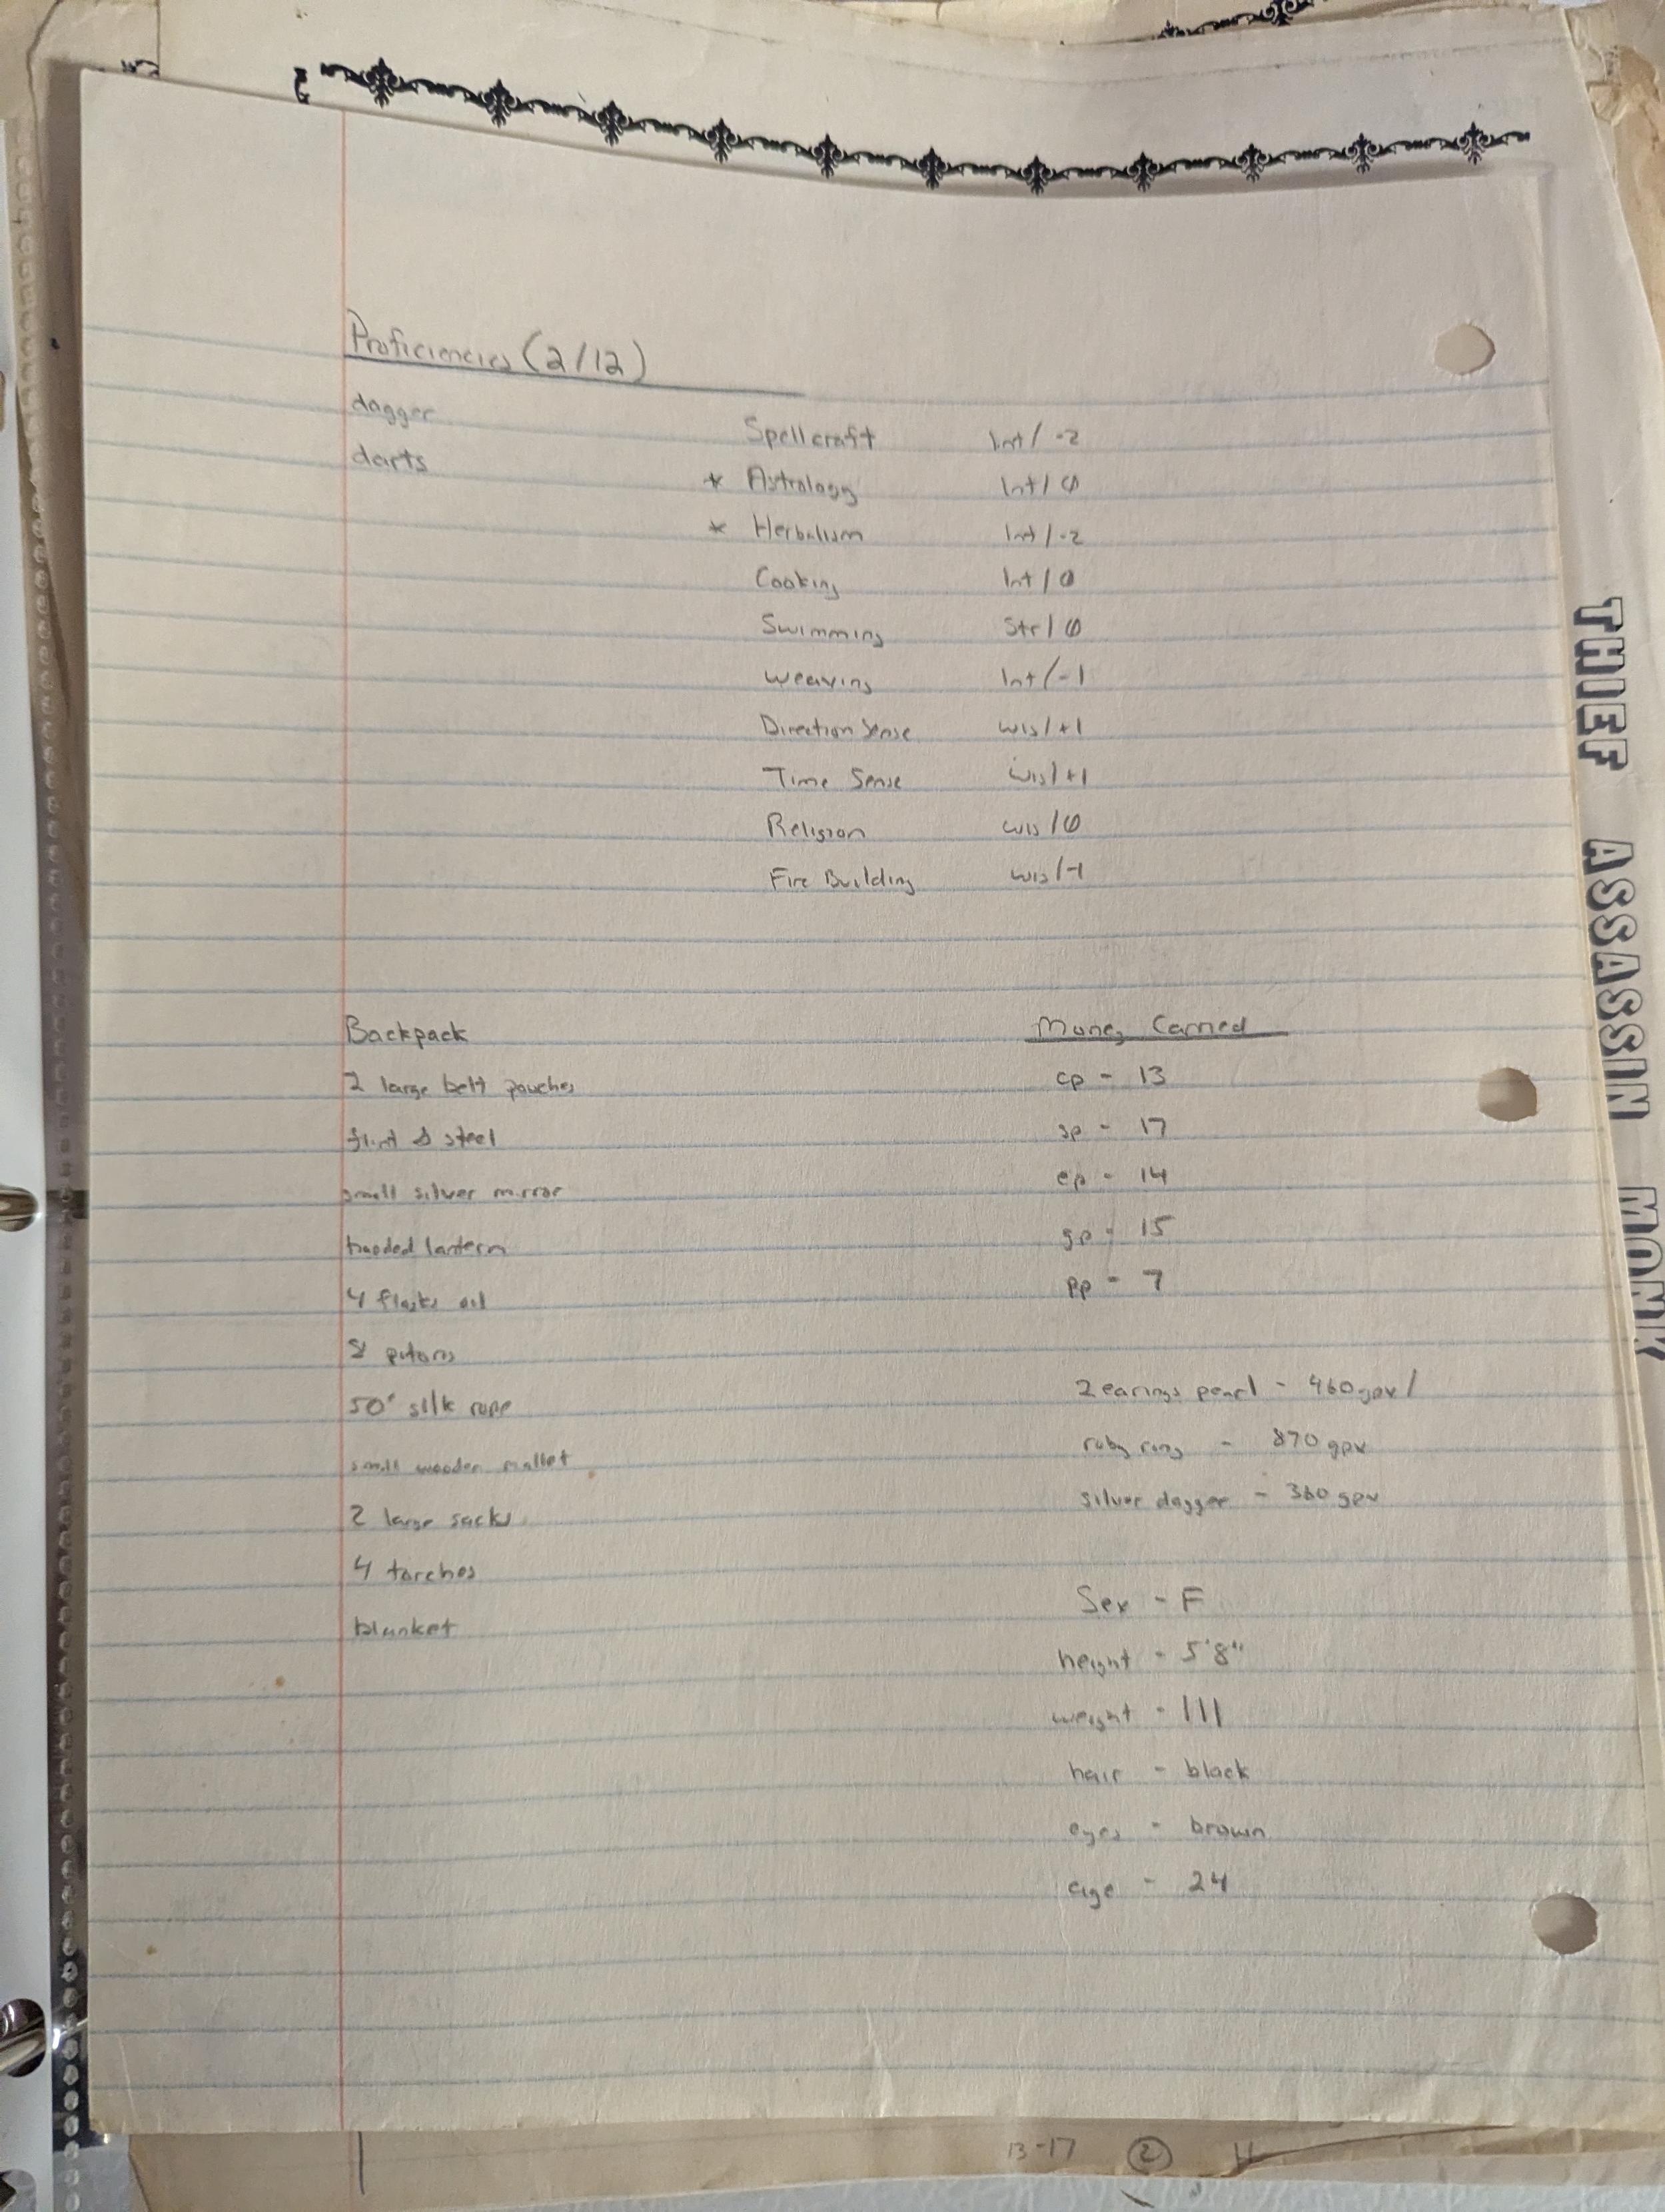 Proficiencies (2/12)
dagger
darts
Spellcraft Int/ -2
* Astrology Int/ 0
* Herbalism Int/ -2
Cooking Int/ 0
Swimming Str/ 0
Weaving Int/ -1
Direction Sense Wis/ +1
Time Sense Wis/ +1
Religion Wis/ 0
Fire Building Wis/ -1
Backpack
2 large belt pouches
flint & steel
small silver mirror
hooded lantern
4 flasks oil
8 pitons
50' silk rope
small wooden mallet
2 large sacks
4 torches
blanket
Money Carried
cp - 13
sp - 17
ep - 14
gp - 15
pp - 7
2 earings pearl - 460 gpv /
ruby ring - 870 gpv
silver dagger - 360 gpv
Sex - F
height - 5'8"
weight - 111
hair - black
eyes - brown
age - 24
THIEF ASSASSIN MONK
13-17 2